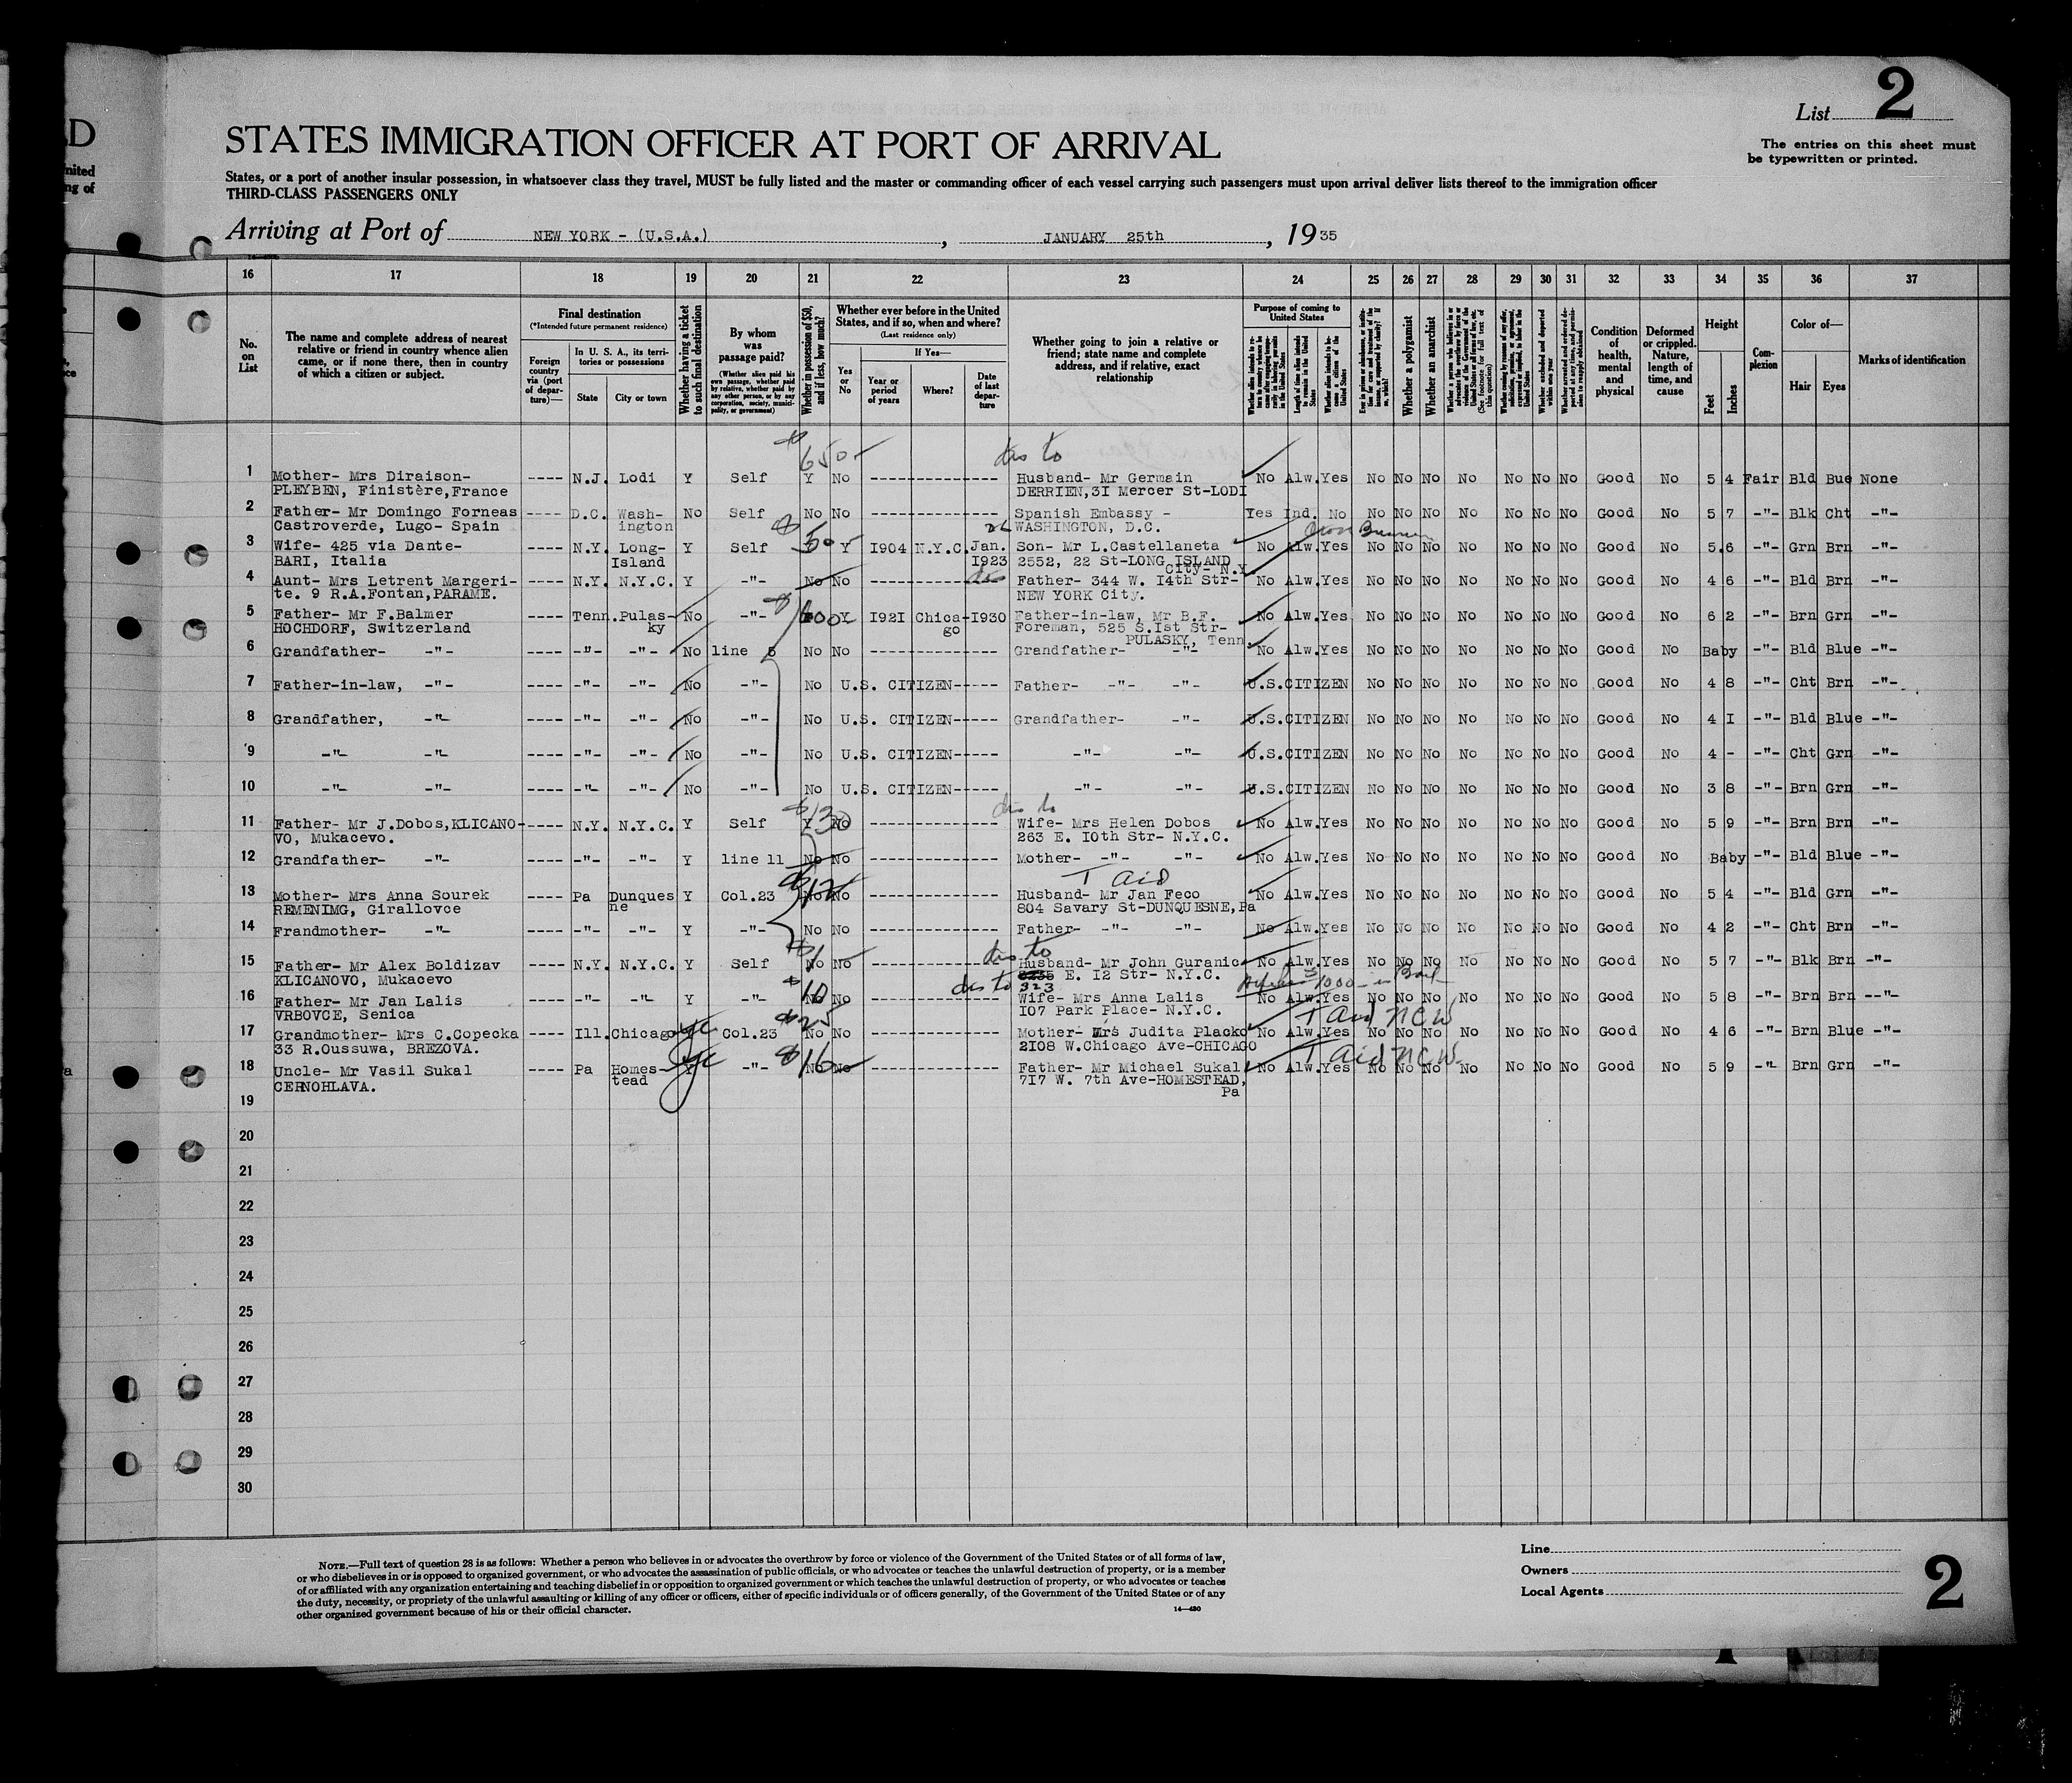 D
List 2
STATES IMMIGRATION OFFICER AT PORT OF ARRIVAL
The entries on this sheet must
be typewritten or printed.
nited
ng of
States, or a port of another insular possession, in whatsoever class they travel, MUST be fully listed and the master or commanding officer of each vessel carrying such passengers must upon arrival deliver lists thereof to the immigration officer
THIRD-CLASS PASSENGERS ONLY
Arriving at Port of NEW YORK - (U.S.A.) , JANUARY 25th , 19 35
16 17 18 19 20 21 22 23 24 25 26 27 28 29 30 31 32 33 34 35 36 37
No. on List
The name and complete address of nearest relative or friend in country whence alien came, or if none there, then in country of which a citizen or subject.
Final destination
(*Intended future permanent residence)
Foreign country via (port of departure)—
In U. S. A., its territories or possessions
State
City or town
Whether having a ticket to such final destination
By whom was passage paid?
(Whether alien paid his own passage, whether paid by relative, whether paid by any other person, or by any corporation, society, municipality, or government)
Whether in possession of $50, and if less, how much?
Whether ever before in the United States, and if so, when and where?
(Last residence only)
Yes or No
If Yes—
Year or period of years
Where?
Date of last departure
Whether going to join a relative or friend; state name and complete address, and if relative, exact relationship
Purpose of coming to United States
Whether a polygamist
Whether an anarchist
Condition of health, mental and physical
Deformed or crippled. Nature, length of time, and cause
Height
Feet
Inches
Complexion
Color of—
Hair
Eyes
Marks of identification
$ 650- des to
1 Mother- Mrs Diraison- ---- N.J. Lodi Y Self Y No -------------- Husband- Mr Germain No Alw. Yes No No No No No No No Good No 5 4 Fair Bld Bue None
PLEYBEN, Finistère,France DERRIEN,3I Mercer St-LODI
2 Father- Mr Domingo Forneas ---- D.C. Wash- No Self No No -------------- Spanish Embassy - Yes Ind. No No No No No No No No Good No 5 7 -"- Blk Cht -"-
Castroverde, Lugo- Spain ington WASHINGTON, D.C.
3 Wife- 425 via Dante- ---- N.Y. Long- Y Self $ 50 Y I904 N.Y.C. Jan. Son- Mr L.Castellaneta No Alw. Yes No No No No No No No Good No 5.6 -"- Grn Brn -"-
BARI, Italia Island I923 2552, 22 St-LONG ISLAND
City- N.Y
4 Aunt- Mrs Letrent Margeri- ---- N.Y. N.Y.C. Y -"- No No -------------- Father- 344 W. I4th Str- No Alw. Yes No No No No No No No Good No 4 6 -"- Bld Brn -"-
te. 9 R.A.Fontan,PARAME. NEW YORK City.
5 Father- Mr F.Balmer ---- Tenn. Pulas- No -"- Y I92I Chica- I930 Father-in-law, Mr B.F. No Alw. Yes No No No No No No No Good No 6 2 -"- Brn Grn -"-
HOCHDORF, Switzerland ky go Foreman, 525 S.Ist Str-
PULASKY, Tenn.
6 Grandfather- -"- ---- -"- -"- No line 5 No No -------------- Grandfather- -"- No Alw. Yes No No No No No No No Good No Baby -"- Bld Blue -"-
7 Father-in-law, -"- ---- -"- -"- No -"- No U.S. CITIZEN----- Father- -"- -"- U.S.CITIZEN No No No No No No No Good No 4 8 -"- Cht Brn -"-
8 Grandfather, -"- ---- -"- -"- No -"- No U.S. CITIZEN----- Grandfather- -"- U.S.CITIZEN No No No No No No No Good No 4 I -"- Bld Blue -"-
9 -"- -"- ---- -"- -"- No -"- No U.S. CITIZEN----- -"- -"- U.S.CITIZEN No No No No No No No Good No 4 - -"- Cht Grn -"-
10 -"- -"- ---- -"- -"- No -"- No U.S. CITIZEN----- -"- -"- U.S.CITIZEN No No No No No No No Good No 3 8 -"- Brn Grn -"-
des to
11 Father- Mr J.Dobos,KLICANO- ---- N.Y. N.Y.C. Y Self $ 130 Y No -------------- Wife- Mrs Helen Dobos No Alw. Yes No No No No No No No Good No 5 9 -"- Brn Brn -"-
VO, Mukacevo. 263 E. IOth Str- N.Y.C.
12 Grandfather- -"- ---- -"- -"- Y line 11 No No -------------- Mother- -"- -"- No Alw. Yes No No No No No No No Good No Baby -"- Bld Blue -"-
T Aid
13 Mother- Mrs Anna Sourek ---- Pa Dunques Y Col.23 $ 12 No No -------------- Husband- Mr Jan Feco No Alw. Yes No No No No No No No Good No 5 4 -"- Bld Grn -"-
REMENIMG, Girallovce ne 804 Savary St-DUNQUESNE,Pa
14 Frandmother- -"- ---- -"- -"- Y -"- No No -------------- Father- -"- -"- No Alw. Yes No No No No No No No Good No 4 2 -"- Cht Brn -"-
des to
15 Father- Mr Alex Boldizav ---- N.Y. N.Y.C. Y Self $ 1 No No -------------- Husband- Mr John Guranic No Alw. Yes No No No No No No No Good No 5 7 -"- Blk Brn -"-
KLICANOVO, Mukacevo E. I2 Str- N.Y.C.
des to 323
16 Father- Mr Jan Lalis ---- -"- -"- Y -"- $ 10 No No -------------- Wife- Mrs Anna Lalis No Alw. Yes No No No No No No No Good No 5 8 -"- Brn Brn --"-
VRBOVCE, Senica IO7 Park Place- N.Y.C.
T Aid NCW
17 Grandmother- Mrs C.Copecka ---- Ill. Chicago Y Col.23 $ 25 No No -------------- Mother- Mrs Judita Placko No Alw. Yes No No No No No No No Good No 4 6 -"- Brn Blue -"-
33 R.Oussuwa, BREZOVA. 2I08 W.Chicago Ave-CHICAGO
T Aid NCW
18 Uncle- Mr Vasil Sukal ---- Pa Homes- Y -"- $ 16 No No -------------- Father- Mr Michael Sukal No Alw. Yes No No No No No No No Good No 5 9 -"- Brn Grn -"-
CERNOHLAVA. tead 7I7 W. 7th Ave-HOMESTEAD,
Pa
19
20
21
22
23
24
25
26
27
28
29
30
NOTE.—Full text of question 28 is as follows: Whether a person who believes in or advocates the overthrow by force or violence of the Government of the United States or of all forms of law,
or who disbelieves in or is opposed to organized government, or who advocates the assassination of public officials, or who advocates or teaches the unlawful destruction of property, or is a member
of or affiliated with any organization entertaining and teaching disbelief in or opposition to organized government or which teaches the unlawful destruction of property, or who advocates or teaches
the duty, necessity, or propriety of the unlawful assaulting or killing of any officer or officers, either of specific individuals or of officers generally, of the Government of the United States or of any
other organized government because of his or their official character.
14—430
Line
Owners
Local Agents
2